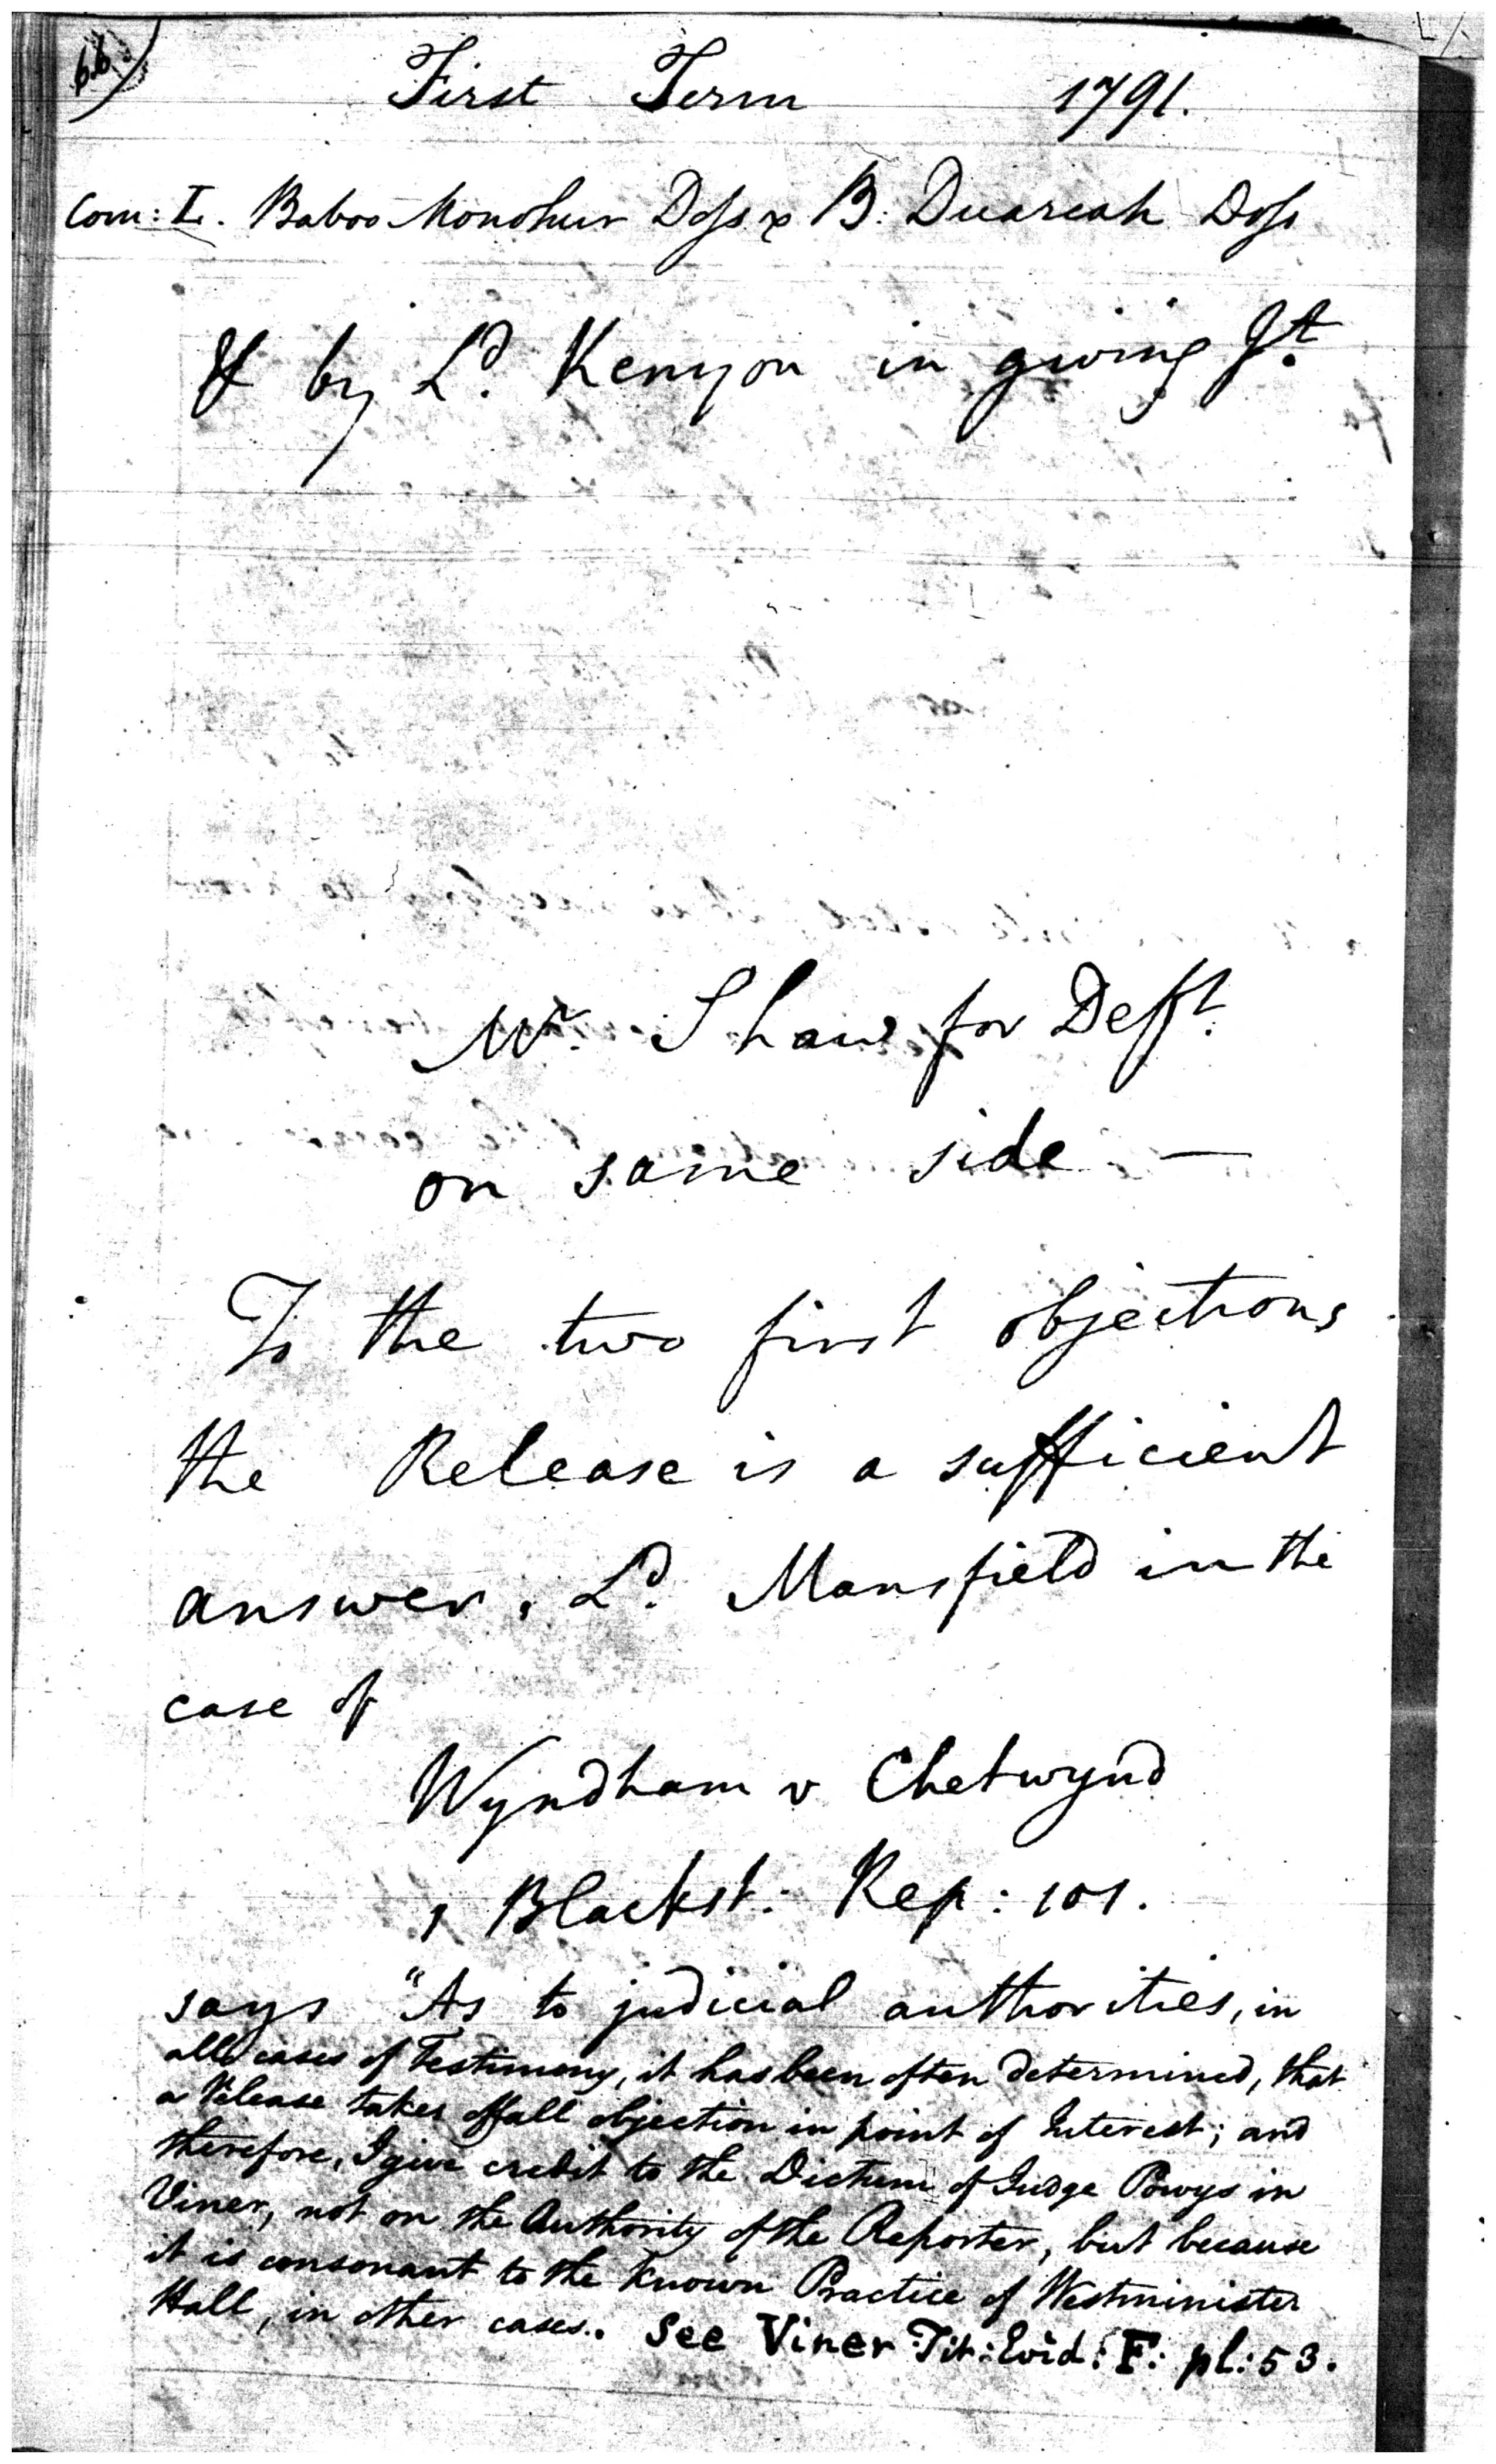 66
First Term 1791.
Com: L. Baboo Monohur Doss v B: Duarcah Doss
& by Ld. Kenyon in giving Jt.
Mr. Shaw for Defft.
on same side —
To the two first objections
the Release is a sufficient
answer. Ld. Mansfield in the
case of
Wyndham v Chetwynd
1 Blackst: Rep: 101.
says "As to judicial authorities, in
all cases of Testimony, it has been often determined, that
a Release takes off all objection in point of Interest; and
therefore, I give credit to the Dictum of Judge Powys in
Viner, not on the Authority of the Reporter, but because
it is consonant to the known Practice of Westminister
Hall, in other cases. See Viner Tit: Evid: F: pl: 53.